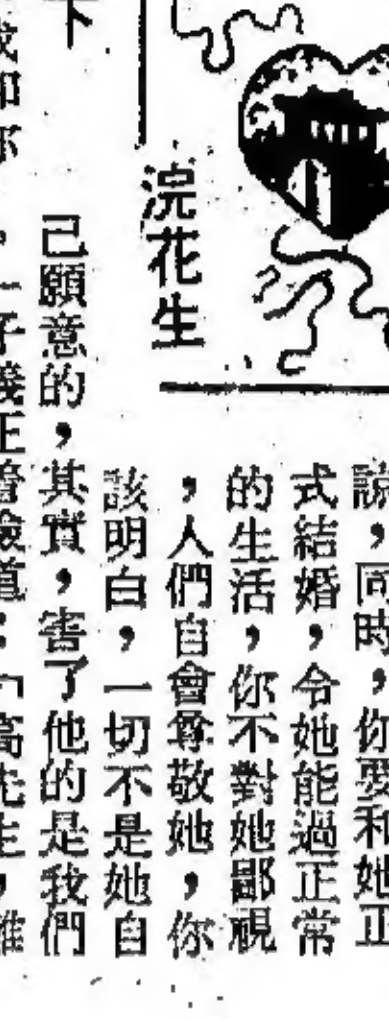 浣花生
說，同時，你要和她正
式結婚，令她能過正常
的生活，你不對她鄙視
，人們自會尊敬她，你
該明白，一切不是她自
己願意的，其實，害了他的是我們
，一子義正
道：「高先生，雖
下